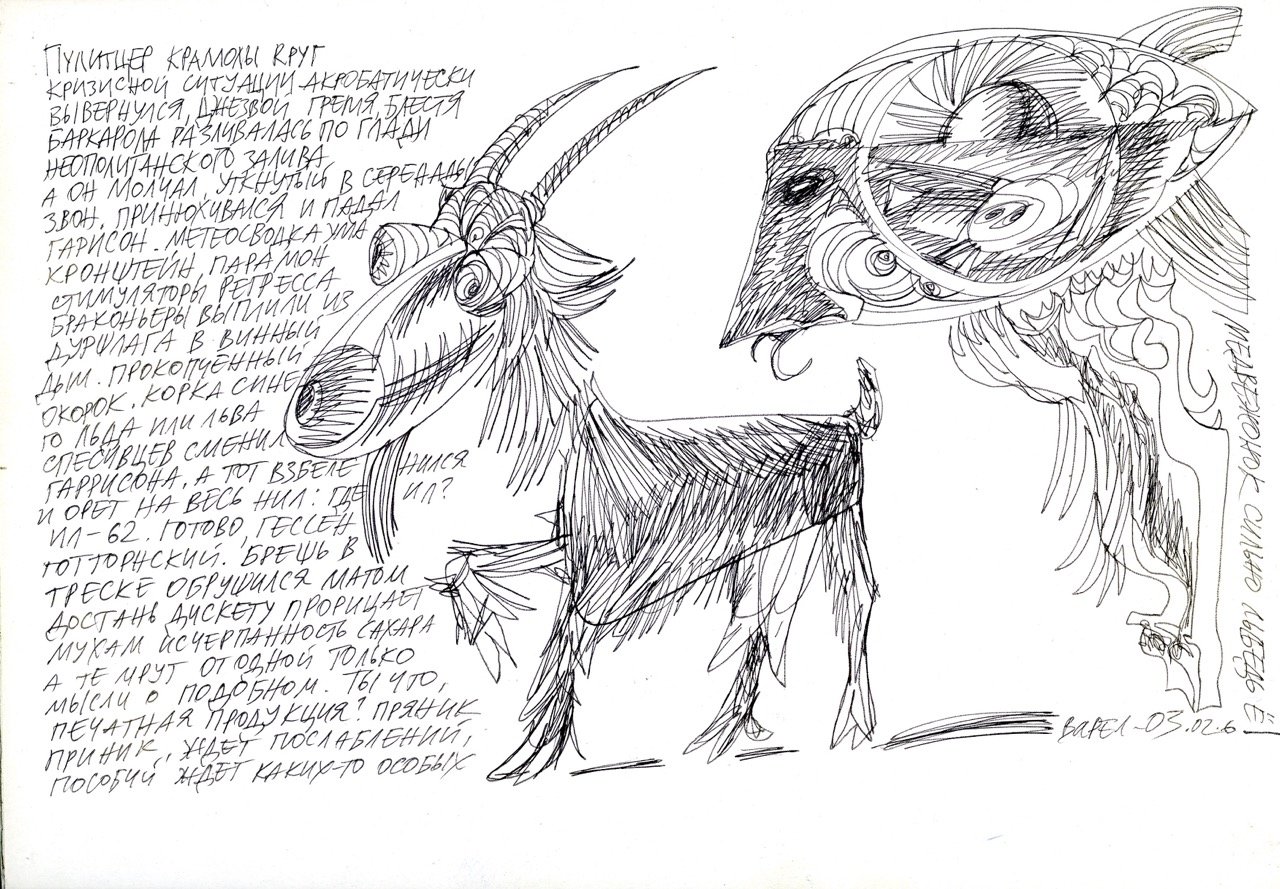 ПУЛИТЦЕР КРАМОЛЫ КРУГ
КРИЗИСНОЙ СИТУАЦИИ АКРОБАТИЧЕСКИ
ВЫВЕРНУЛСЯ, ДЖЕЗВОЙ ГРЕМЯ, БЛЕСТЯ
БАРКАРОЛА РАЗЛИВАЛАСЬ ПО ГЛАДИ
НЕОПОЛИТАНСКОГО ЗАЛИВА,
А ОН МОЛЧАЛ, УТКНУТЫЙ В СЕРЕНАДЫ
ЗВОН. ПРИНЮХИВАЛСЯ И ПАДАЛ
ГАРИСОН. МЕТЕОСВОДКА УМА
КРОНШТЕЙН, ПАРАМОН
СТИМУЛЯТОРЫ РЕГРЕССА
БРАКОНЬЕРЫ ВЫПЛИЛИ ИЗ
ДУРШЛАГА В ВИННЫЙ
ДЫМ. ПРОКОПЧЕННЫЙ
ОКОРОК. КОРКА СИНЕ
ГО ЛЬДА ИЛИ ЛЬВА
СПЕСИВЦЕВ СМЕНИЛ
ГАРРИСОНА, А ТОТ ВЗБЕЛЕ НИЛСЯ
И ОРЕТ НА ВЕСЬ НИЛ: ГДЕ ИЛ?
ИЛ-62. ГОТОВО, ГЕССЕН
ГОТТОРНСКИЙ. БРЕШЬ В
ТРЕСКЕ ОБРУШИЛСЯ МАТОМ
ДОСТАНЬ ДИСКЕТУ ПРОРИЦАЕТ
МУХАМ ИСЧЕРПАННОСТЬ САХАРА
А ТЕ МРУТ ОТ ОДНОЙ ТОЛЬКО
МЫСЛИ О ПОДОБНОМ. ТЫ ЧТО,
ПЕЧАТНАЯ ПРОДУКЦИЯ? ПРЯНИК
ПРИНИК, ЖДЕТ ПОСЛАБЛЕНИЙ,
ПОСОБИЙ ЖДЕТ КАКИХ-ТО ОСОБЫХ
03.02.6